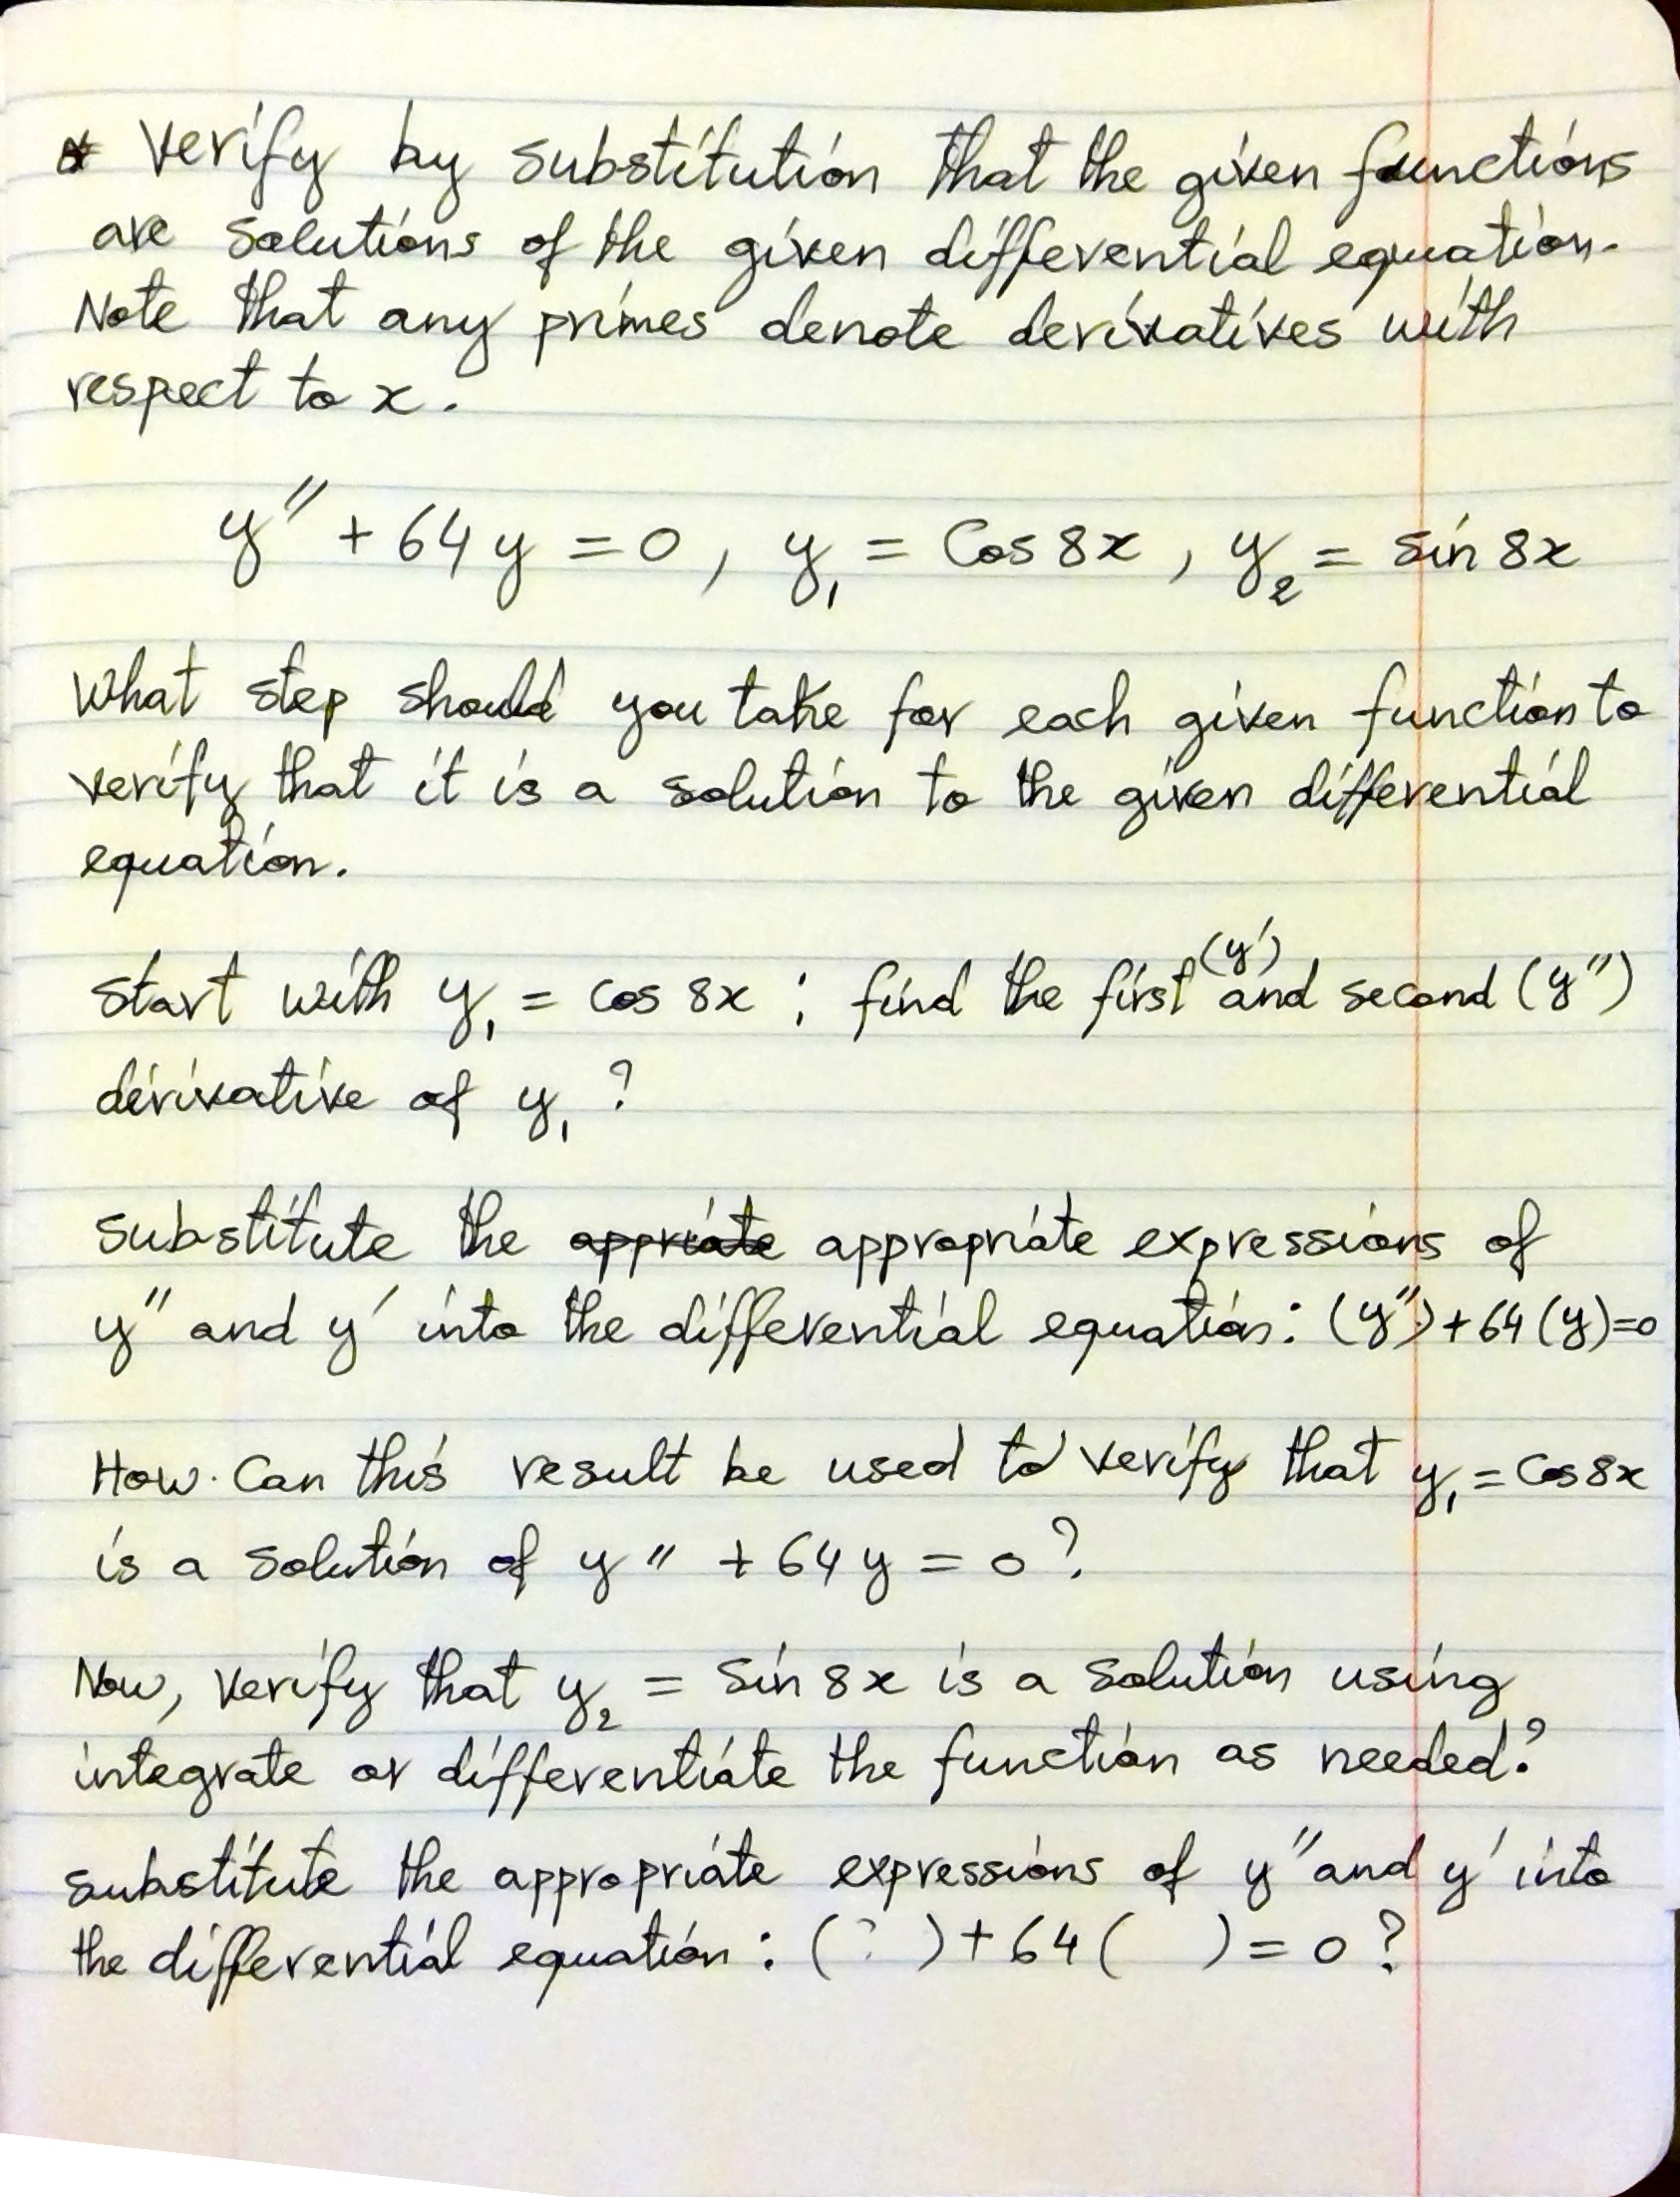 * Verify by substitution that the given functions
are solutions of the given differential equation.
Note that any primes denote derivatives with
respect to x.
y'' + 64y = 0, y₁ = Cos 8x, y₂ = sin 8x
What step should you take for each given function to
verify that it is a solution to the given differential
equation.
Start with y₁ = cos 8x ; find the first (y') and second (y'')
derivative of y₁ ?
Substitute the appriate appropriate expressions of
y'' and y' into the differential equation: (y'')+64(y)=0
How Can this result be used to verify that y₁ = Cos 8x
is a solution of y'' + 64y = 0 ?
Now, verify that y₂ = Sin 8x is a solution using
integrate or differentiate the function as needed?
substitute the appropriate expressions of y'' and y' into
the differential equation: ( ? )+64( )= 0 ?